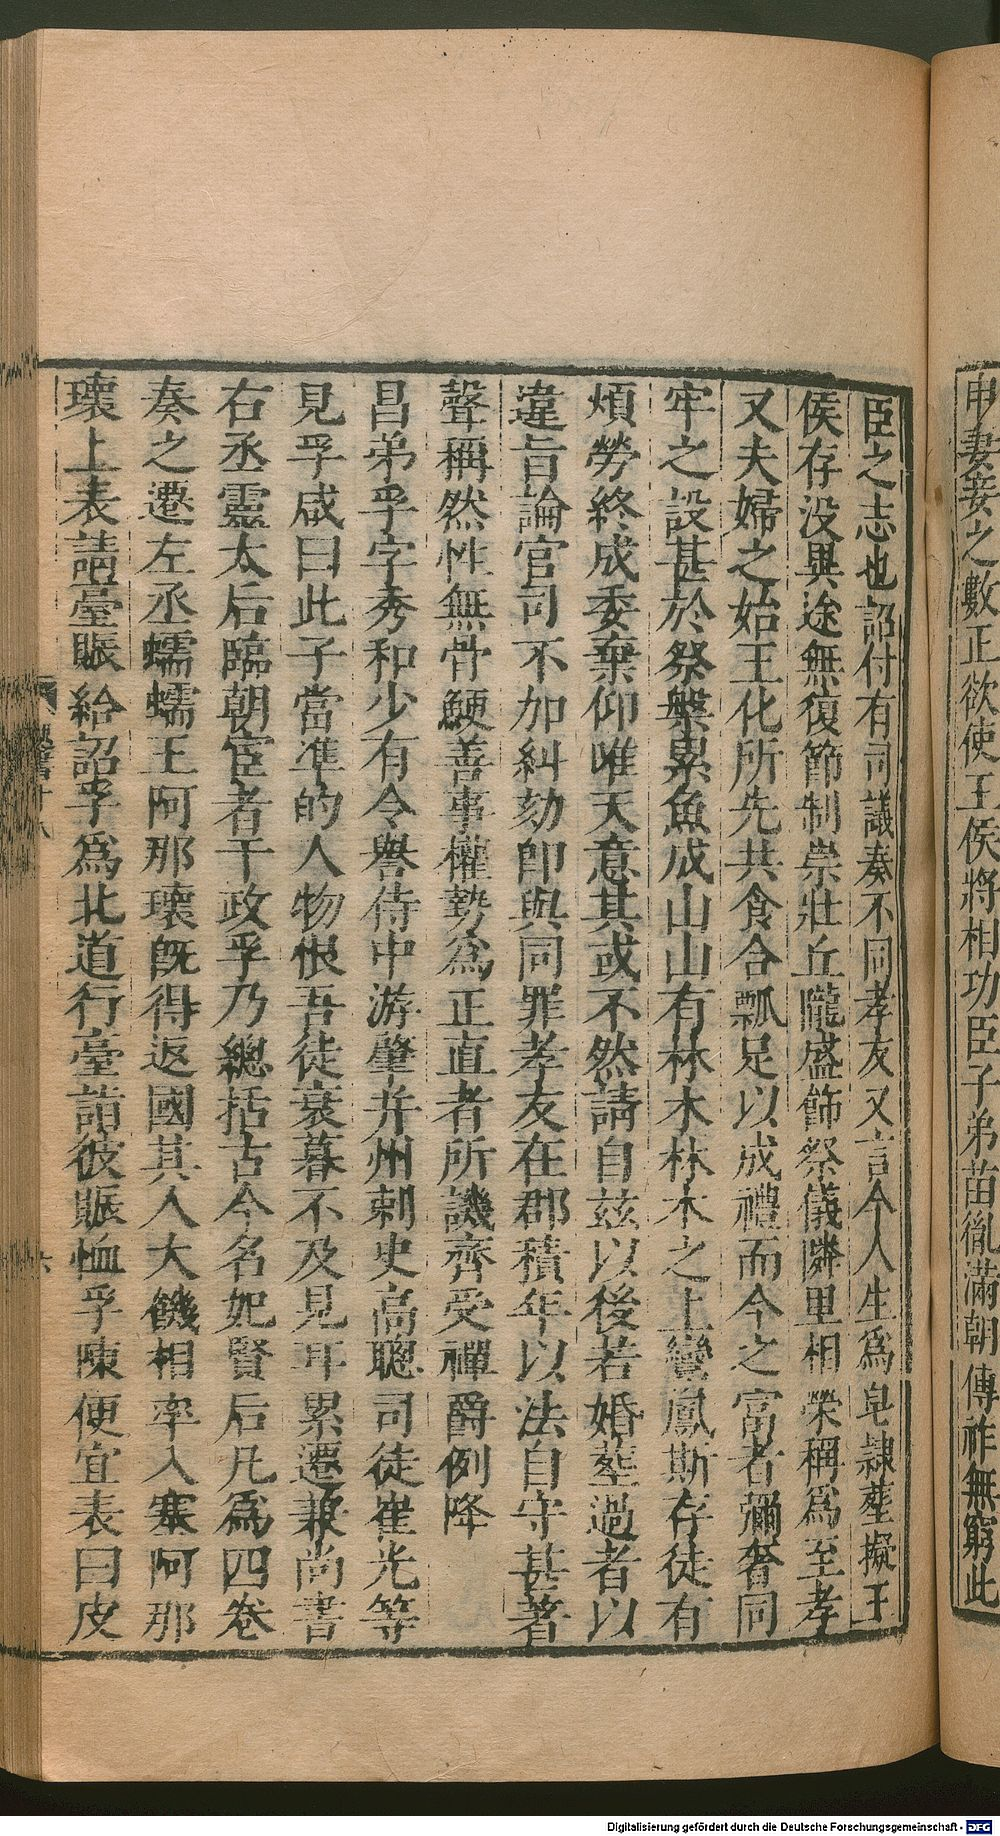 申妻妾之數正欲使王侯將相功臣子弟苗胤滿朝傳祚無窮此
臣之志也詔付有司議奏不同孝友又言今人生爲皁隸葬擬王
侯存没異途無復節制崇壯丘隴盛飾祭儀隣里相榮稱爲至孝
又夫婦之始王化所先共食合瓢足以成禮而今之富者彌奢同
牢之設甚於祭槃累魚成山山有林木林木之上鸞鳳斯存徒有
煩勞終成委棄仰唯天意其或不然請自兹以後若婚葬過者以
違旨論官司不加糾劾即與同罪孝友在郡積年以法自守甚著
聲稱然性無骨鯁善事權勢爲正直者所譏齊受禪爵例降
昌弟孚字秀和少有令譽侍中游肇并州刺史高聰司徒崔光等
見孚咸曰此子當準的人物恨吾徒衰暮不及見耳累遷兼尚書
右丞靈太后臨朝宦者干政孚乃總括古今名妃賢后凡爲四卷
奏之遷左丞蠕蠕王阿那瓌既得返國其人大饑相率入塞阿那
瓌上表請臺賑給詔孚爲北道行臺詣彼賑恤孚陳便宜表曰皮
十八
六
Digitalisierung gefördert durch die Deutsche Forschungsgemeinschaft - DFG